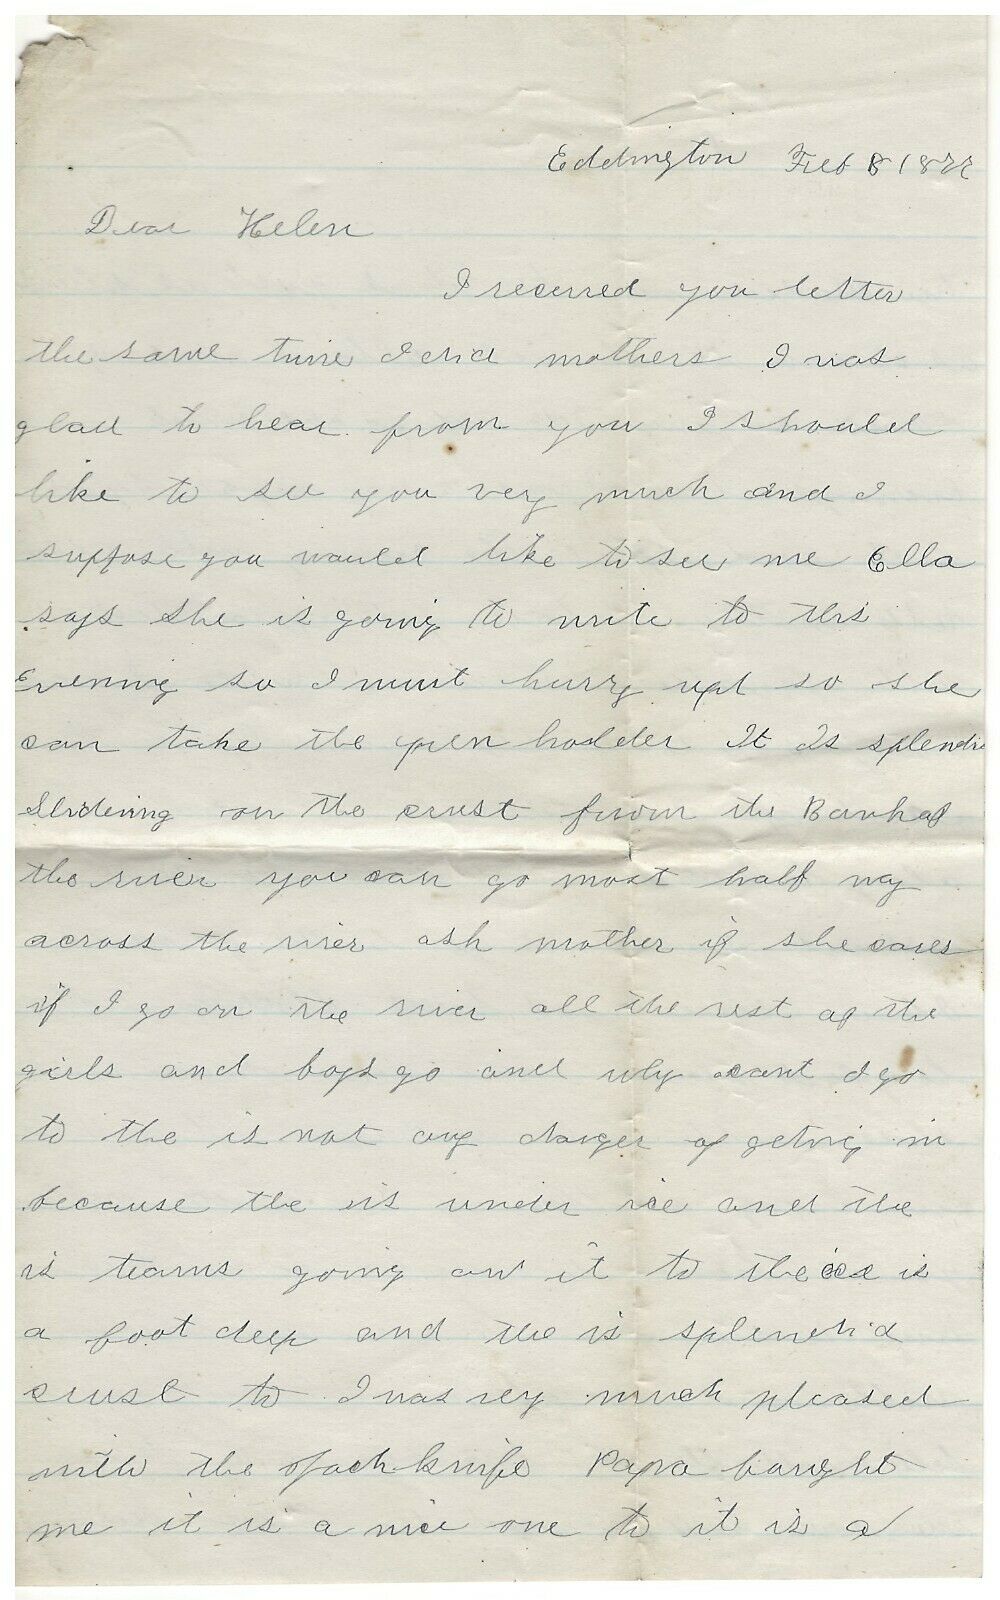 Eddington Feb 8 1877
Dear Helen
I received you letter
the same time I did mothers I was
glad to hear from you I should
like to see you very much and I
suppose you would like to see me Ella
says she is going to write to this
Evening so I must hurry up so she
can take the pen holder It Is splendid
Slideing on the crust from the Bank of
the river you can go most half way
across the river ask mother if she cares
if I go on the river all the rest of the
girls and boys go and why cant I go
to the is not any danger of geting in
because the its under ice and the
is teams going on it to the ice is
a foot deep and the is splendid
crust to I was vey much pleased
with the jack knife Papa bought
me it is a nice one to it is a